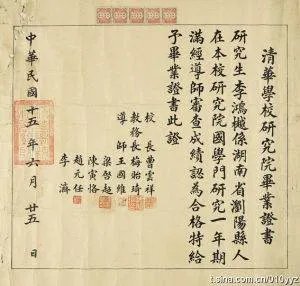 清華學校研究院畢業證書
研究生李鴻樾係湖南省瀏陽縣人
在本校研究院國學門研究一年期
滿經導師審查成績認為合格特給
予畢業證書此證
校長曹雲祥
教務長梅貽琦
導師王國維
梁啓超
陳寅恪
趙元任
李濟
中華民國十五年六月廿五日
t.sina.com.cn/010yyz